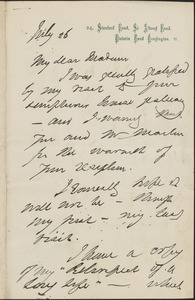 24, Stanford Road, St. Albans Road,
Victoria Road, Kensington, W.
July 26
My dear Madam
I was really gratified
by my visit to your
sumptuous house
— and I warmly thank
you and Mr
for the warmth of
your reception.
I earnestly hope it
will not be — through
my fault — my last
visit.
I have a copy
of my "Retrospect of a
Long Life" — which